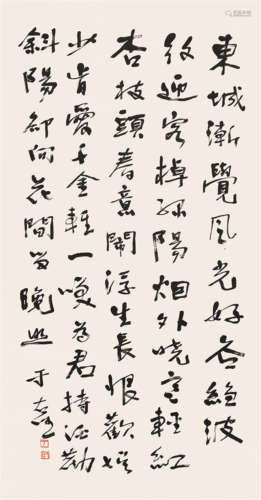 東城漸覺風光好谷波
紋迎客棹綠陽烟外曉寒輕紅
杏枝頭春意鬧浮生長恨歡娱
少肯愛千金輕一笑為君持酒勸
斜陽却向花間留晚照于